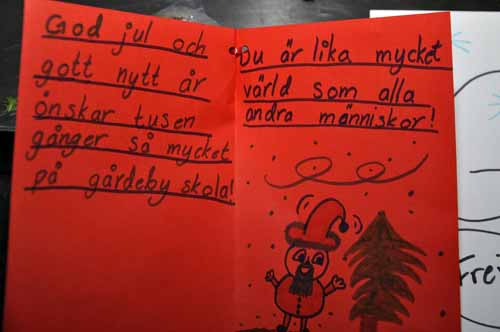 God jul och
gott nytt år
önskar tusen
gånger så mycket
på gårdeby skola!
Du är lika mycket
värld som alla
andra människor!
Frei